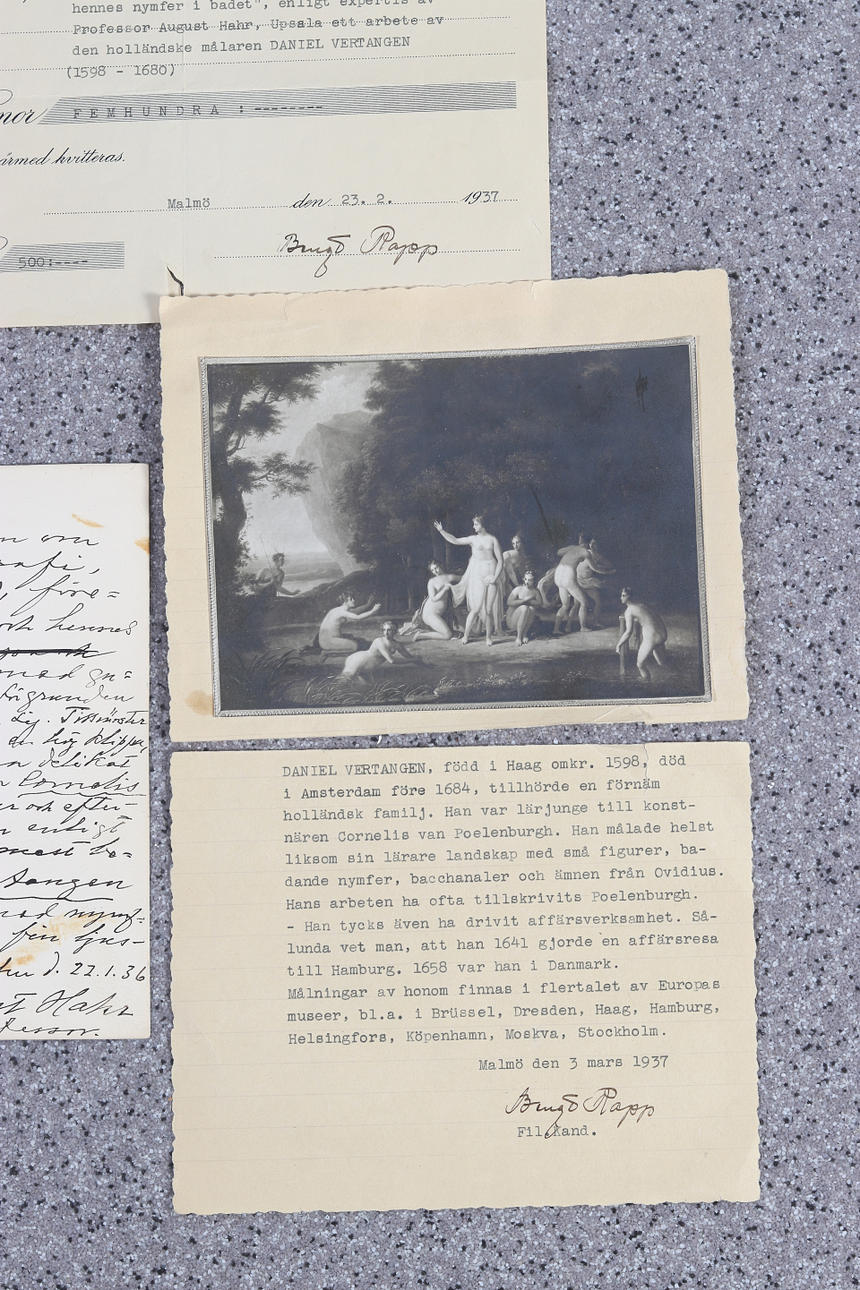 hennes nymfer i badet", enligt expertis av
Professor August Hahr, Upsala ett arbete av
den holländske målaren DANIEL VERTANGEN
(1598 - 1680)
FEMHUNDRA :--------
kvitteras.
Malmö den 23. 2. 1937
500:----
Bengt Rapp
om
före=
och hennes
med
förgrunden
en hög klippa,
delikat
Cornelis
och efter-
enligt
mest be-
med nymf-
fin ljus-
d. 22.1.36
Hahr
DANIEL VERTANGEN, född i Haag omkr. 1598, död
i Amsterdam före 1684, tillhörde en förnäm
holländsk familj. Han var lärjunge till konst-
nären Cornelis van Poelenburgh. Han målade helst
liksom sin lärare landskap med små figurer, ba-
dande nymfer, bacchanaler och ämnen från Ovidius.
Hans arbeten ha ofta tillskrivits Poelenburgh.
- Han tycks även ha drivit affärsverksamhet. Så-
lunda vet man, att han 1641 gjorde en affärsresa
till Hamburg. 1658 var han i Danmark.
Målningar av honom finnas i flertalet av Europas
museer, bl.a. i Brüssel, Dresden, Haag, Hamburg,
Helsingfors, Köpenhamn, Moskva, Stockholm.
Malmö den 3 mars 1937
Bengt Rapp
Fil.Kand.